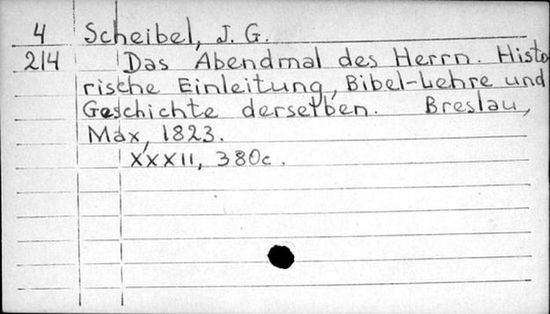 4 Scheibel, J. G.
214 Das Abendmal des Herrn. Histo-
rische Einleitung, Bibel-Lehre und
Geschichte derselben. Breslau,
Max, 1823.
XXXII, 380c.